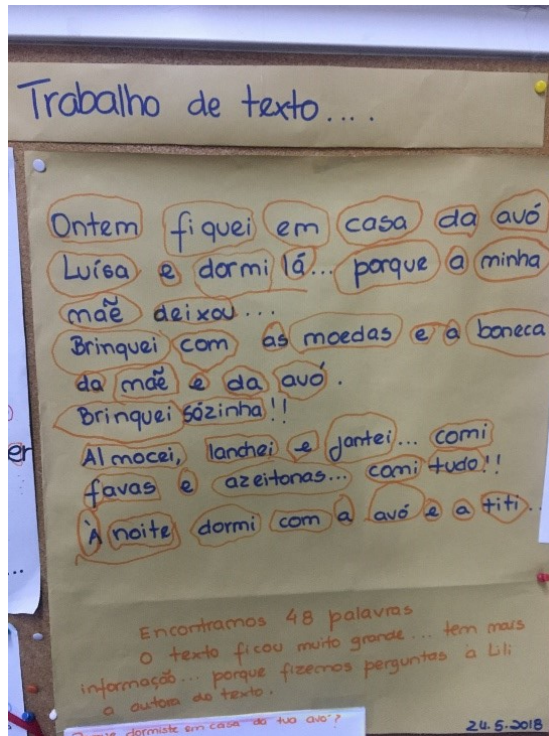 Trabalho de texto....
Ontem fiquei em casa da avó
Luísa e dormi lá... porque a minha
mãe deixou...
Brinquei com as moedas e a boneca
da mãe e da avó.
Brinquei sózinha!!
Almocei, lanchei e jantei... comi
favas e azeitonas... comi tudo!!
À noite dormi com a avó e a titi...
Encontramos 48 palavras
O texto ficou muito grande... tem mais
informação... porque fizemos perguntas à Lili
a autora do texto.
dormiste em casa da tua avó?
24.5.2018
er
...